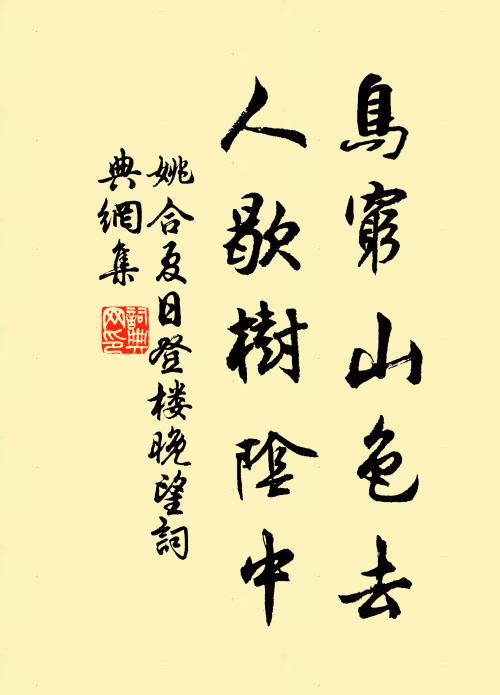 鳥窮山色去
人歇樹陰中
姚合夏日登楼晚望詞
典網集
詞典
网印